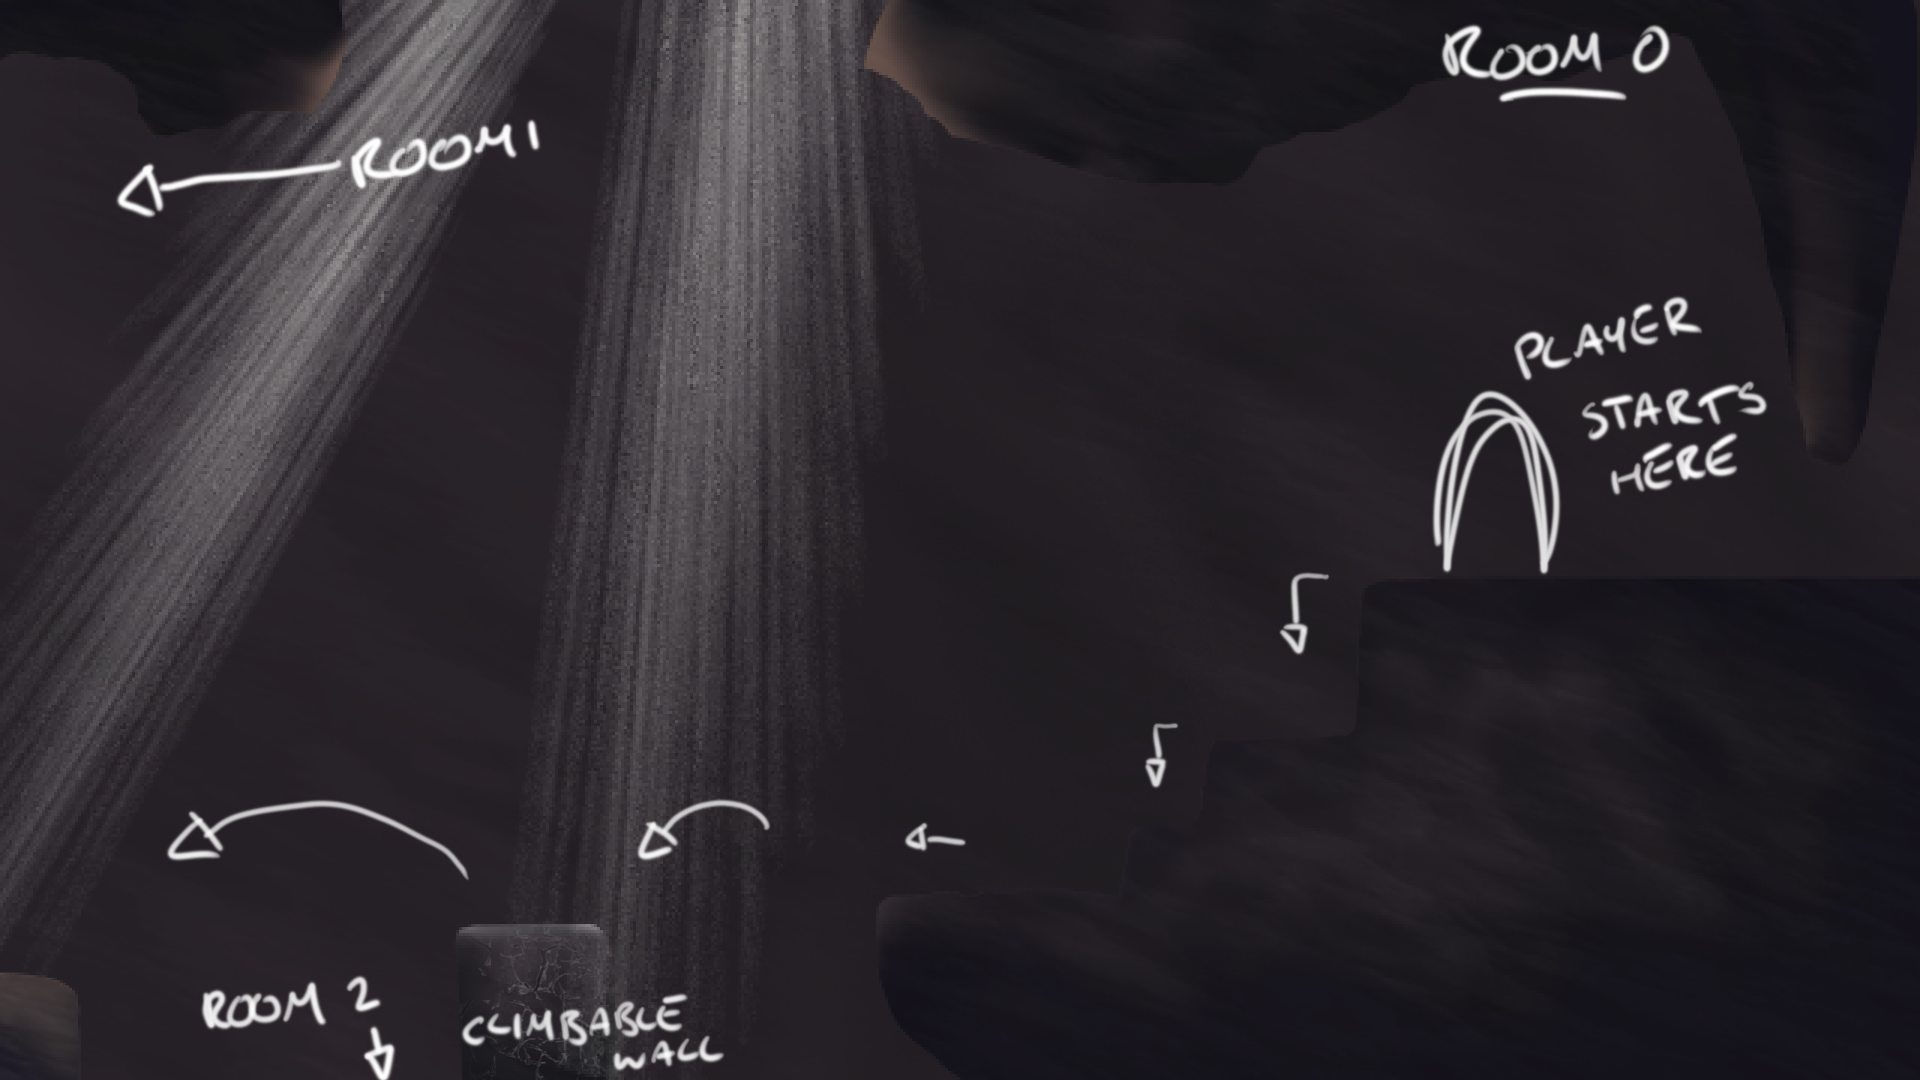 ROOM 0
ROOM 1
PLAYER
STARTS
HERE
ROOM 2
CLIMBABLE
WALL